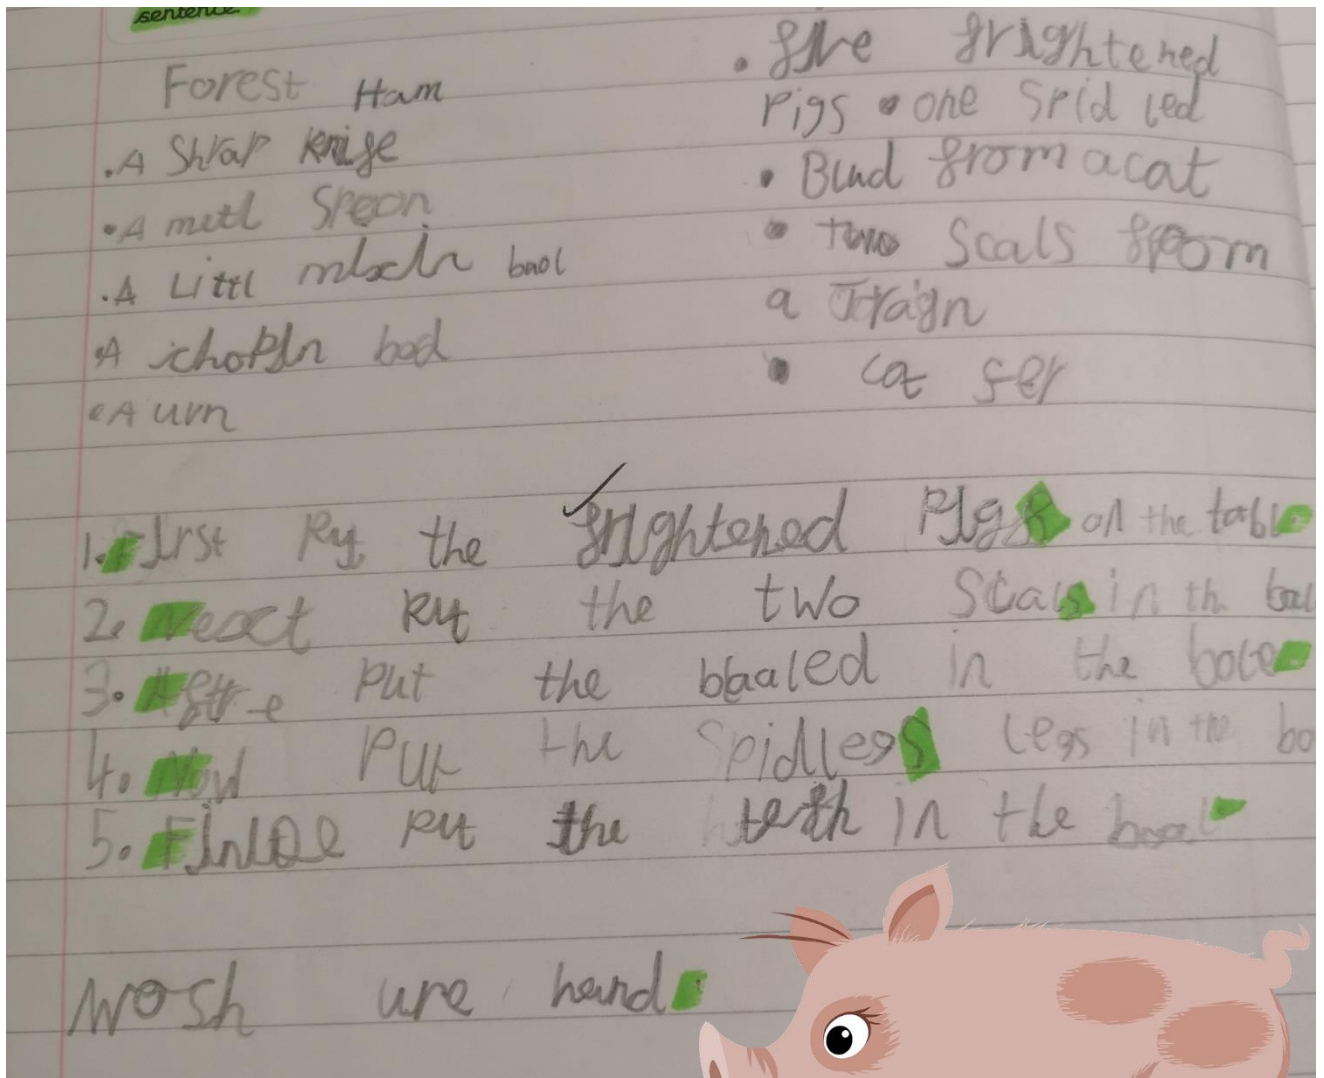 sentence.
Forest Ham
. A Shrap knife
. A metl Spoon
. A Littl baol
. A chopln bod
. A urn
. five frightened
Pigs • one Spid led
• Blud from a cat
• two Scals from
a Jragn
• cat fer
1. First Put the frightened Pigs on the table
2. Neoct Put the two Scals in th bal
3. Aftre Put the blaaled in the bole
4. Now Put the Spidlegs legs in the bo
5. Finlae Put the teth in the baol
Wosh ure hand.